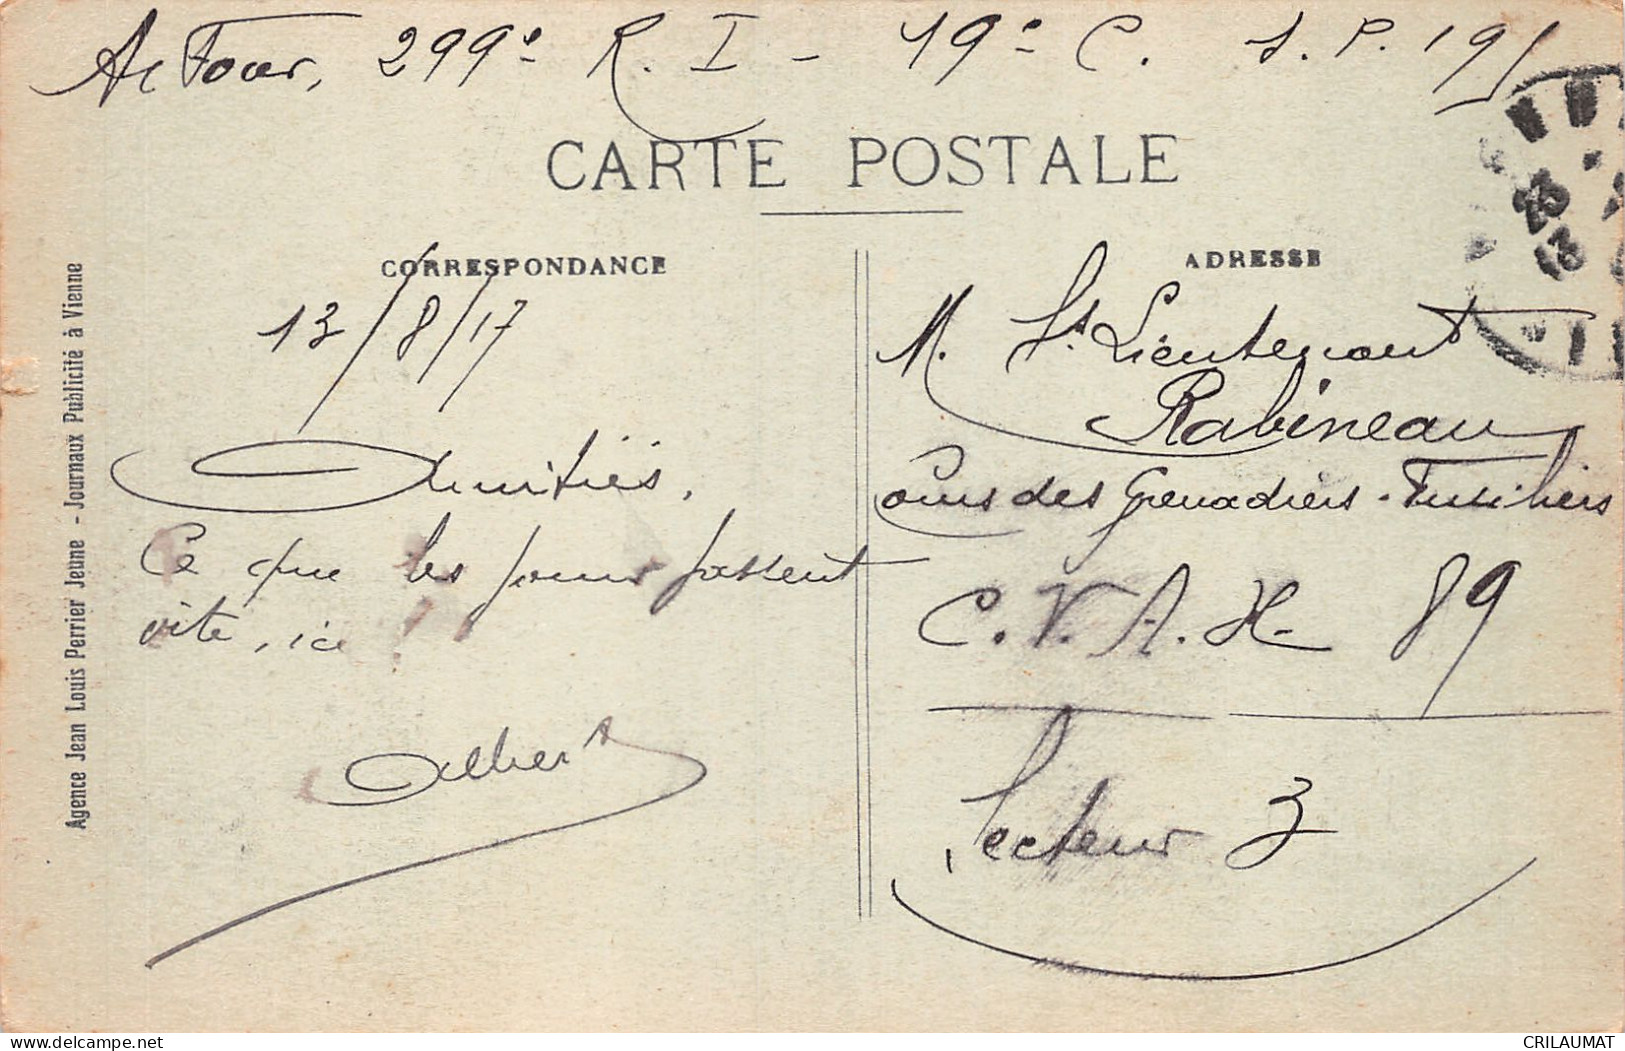 299e R. I - 19e C. S. P. 195
CARTE POSTALE
CORRESPONDANCE
ADRESSE
13/8/17
Amitiés.
Ce que les jours passent
vite, ici !
Albert
M. St. Lieutenant
Rabineau
Cours des Grenadiers - Fusiliers
C. V. A. H. 89
Secteur 3
Agence Jean Louis Perrier Jeune - Journaux Publicité à Vienne
23
13
www.delcampe.net
CRILAUMAT